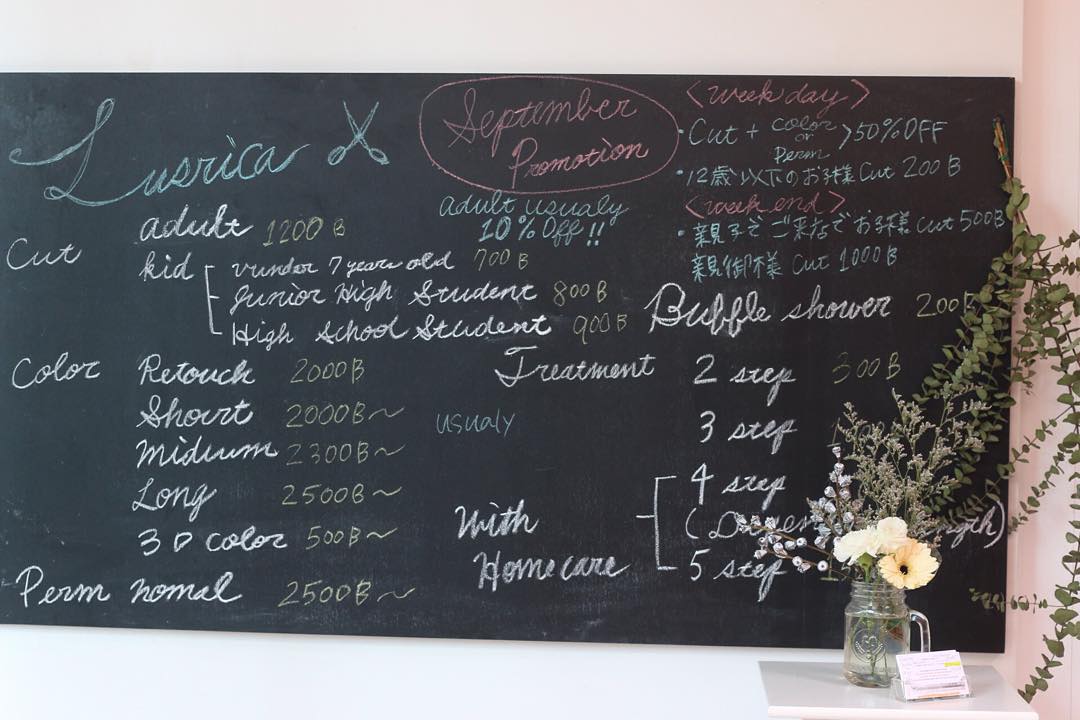 Lusrica
September
Promotion
adult usualy
10% Off!!
<week day>
・Cut + color or Perm > 50% OFF
・12歳以下のお子様 Cut 200B
<week end>
・親子でご来店でお子様 Cut 500B
親御様 Cut 1000B
Cut adult 1200B
kid under 7 years old 700B
Junior High Student 800B
High School Student 900B
Bubble shower 200
Color Retouch 2000B
Short 2000B~
usualy
Midium 2300B~
Long 2500B~
3D color 500B~
Perm nomal 2500B~
Treatment 2 step 300B
3 step
4 step
With
Homecare
5 step